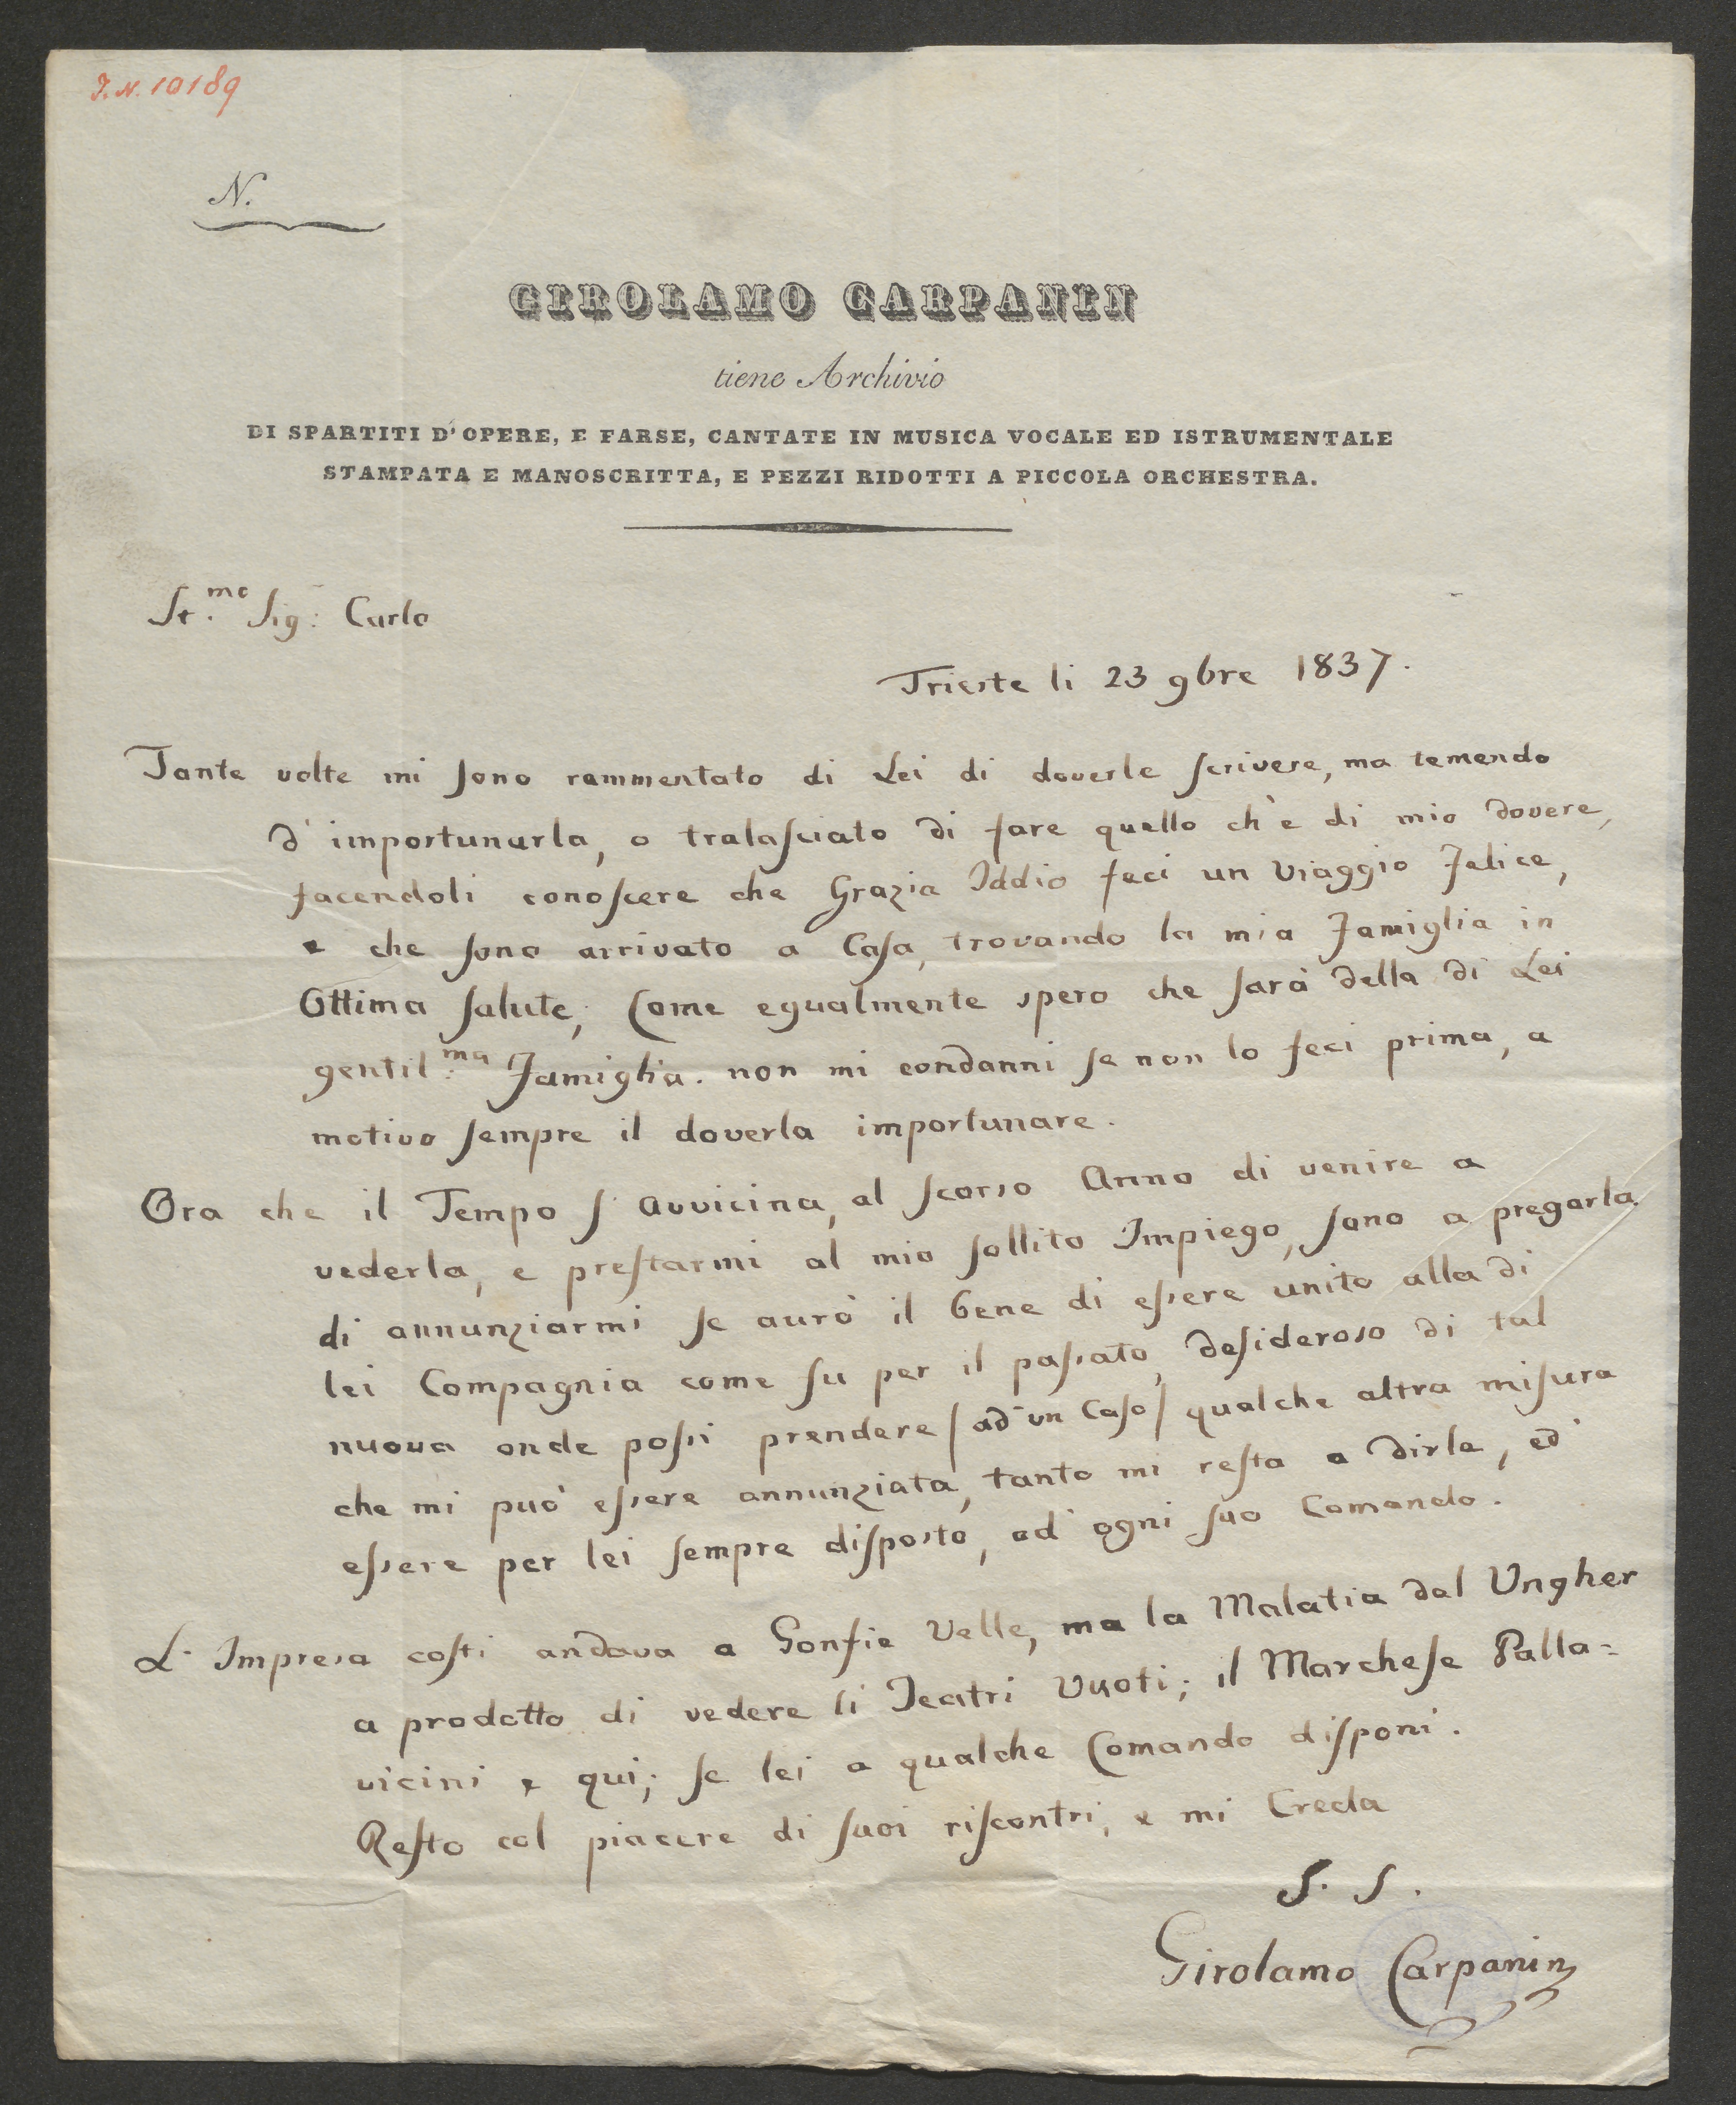 J.N. 10189
N.
GIROLAMO CARPANIN
tiene Archivio
DI SPARTITI D'OPERE, E FARSE, CANTATE IN MUSICA VOCALE ED ISTRUMENTALE
STAMPATA E MANOSCRITTA, E PEZZI RIDOTTI A PICCOLA ORCHESTRA.
St.mo Sig: Carlo
Trieste li 23 9bre 1837.
Tante volte mi sono rammentato di Lei di doverle scrivere, ma temendo
d'importunarla, o tralasciato di fare quello ch'è di mio dovere,
facendoli conoscere che Grazia Iddio feci un Viaggio Felice,
e che sono arrivato a Casa, trovando la mia Famiglia in
Ottima salute; Come egualmente spero che sarà della di Lei
gentil:ma Famiglia. non mi condanni se non lo feci prima, a
motivo sempre il doverla importunare.
Ora che il Tempo s'avvicina, al scorso Anno di venire a
vederla, e prestarmi al mio sollito Impiego, sono a pregarla
di annunziarmi se aurò il bene di essere unito alla di
lei Compagnia come fu per il passato, desideroso di tal
nuova onde possi prendere / ad un Caso / qualche altra misura
che mi può essere annunziata, tanto mi resta a dirle, ed
essere per lei sempre disposto, ad ogni suo Comando.
L'Impresa costi andava a Gonfie Velle, ma la Malatia dal Ungher
a prodotto di vedere li Teatri Vuoti; il Marchese Palla=
vicini e qui; se lei a qualche Comando disponi.
Resto col piacere di suoi riscontri, e mi Creda
S. S.
Girolamo Carpanin